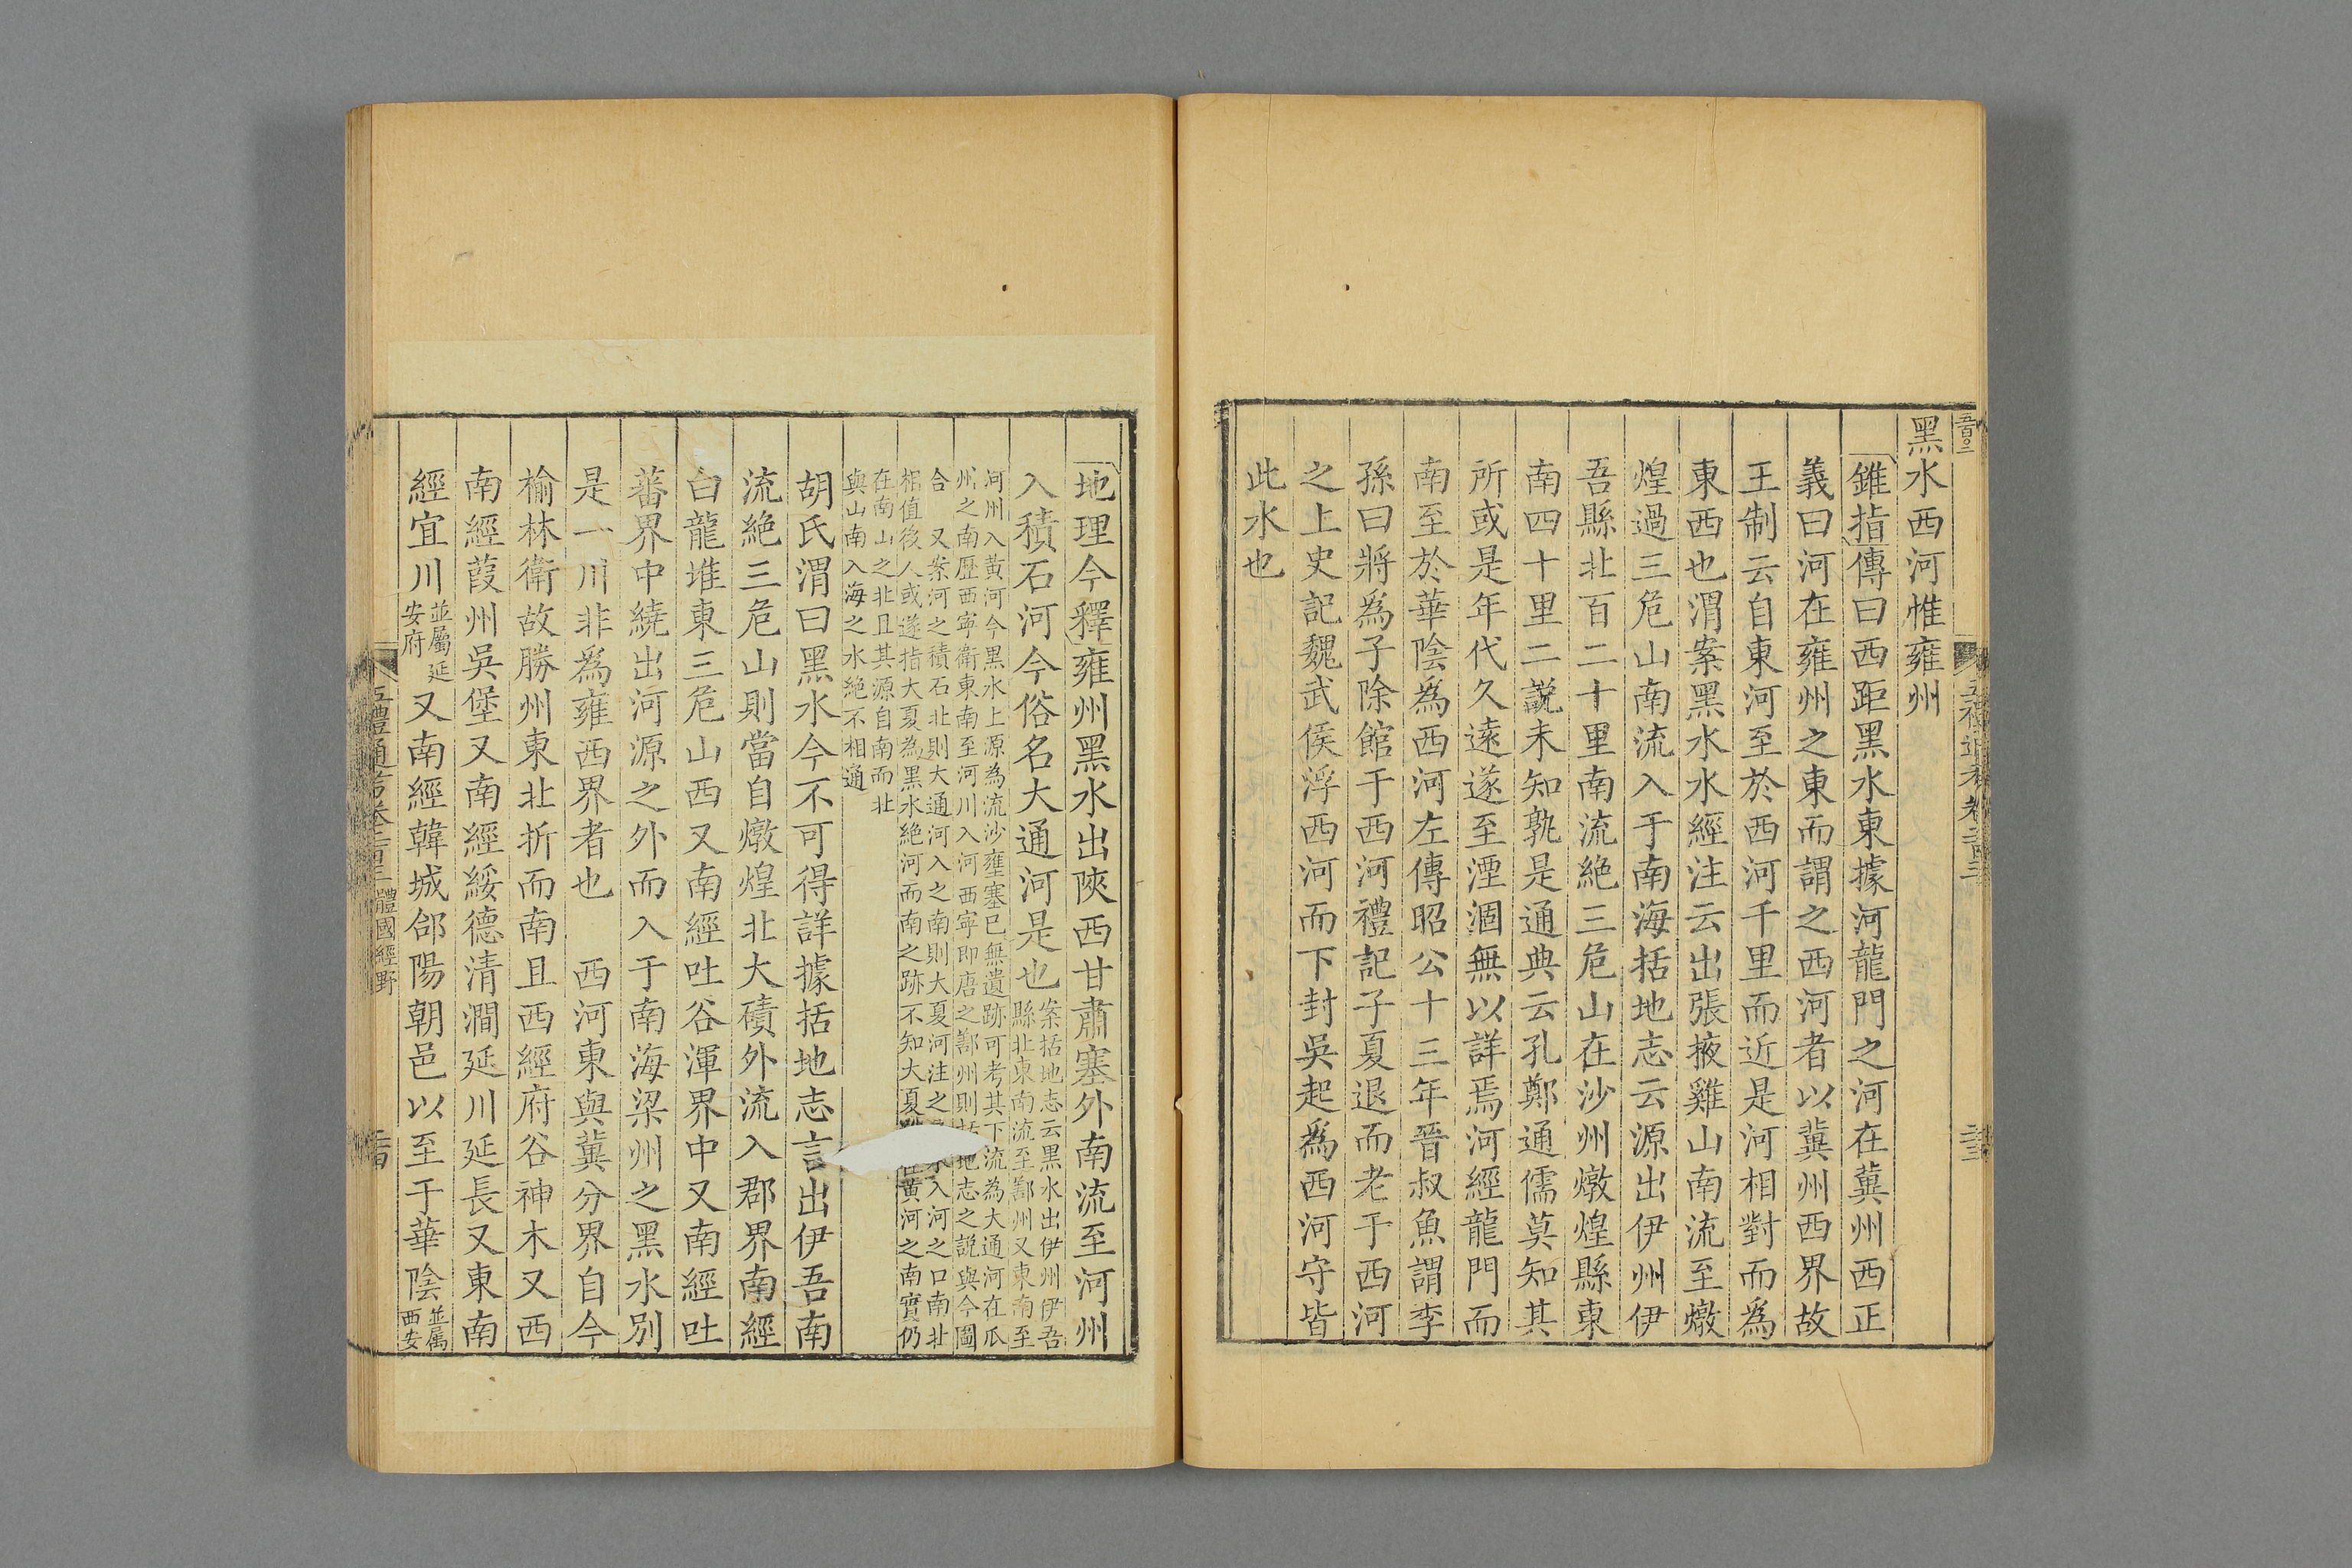 黑水西河惟雍州
錐指傳曰西距黑水東據河龍門之河在冀州西正
義曰河在雍州之東而謂之西河者以冀州西界故
王制云自東河至於西河千里而近是河相對而為
東西也渭案黑水水經注云出張掖雞山南流至燉
煌過三危山南流入于南海括地志云源出伊州伊
吾縣北百二十里南流絕三危山在沙州燉煌縣東
南四十里二說未知孰是通典云孔鄭通儒莫知其
所或是年代久遠遂至湮涸無以詳焉河經龍門而
南至於華陰為西河左傳昭公十三年晉叔魚謂季
孫曰將為子除館于西河禮記子夏退而老于西河
之上史記魏武侯浮西河而下封吳起為西河守皆
此水也
地理今釋雍州黑水出陝西甘肅塞外南流至河州
入積石河今俗名大通河是也
案括地志云黑水出伊州伊吾
縣北東南流至鄯州又東南至
河州入黃河今黑水上源為流沙壅塞已無遺跡可考其下流為大通河在瓜
州之南歷西寧衛東南至河川入河西寧即唐之鄯州則括地志之說與今圖
合　又案河之積石北則大通河入之南則大夏河注之入河之口南北
相值後人或遂指大夏為黑水絕河而南之跡不知大夏黃河之南實仍
在南山之北且其源自南而北
與山南入海之水絕不相通
胡氏渭曰黑水今不可得詳據括地志言出伊吾南
流絕三危山則當自燉煌北大磧外流入郡界南經
白龍堆東三危山西又南經吐谷渾界中又南經吐
蕃界中繞出河源之外而入于南海梁州之黑水別
是一川非為雍西界者也　西河東與冀分界自今
榆林衛故勝州東北折而南且西經府谷神木又西
南經葭州吳堡又南經綏德清澗延川延長又東南
經宜川並屬延安府又南經韓城郃陽朝邑以至于華陰並屬西安
五禮通考卷二百三
體國經野